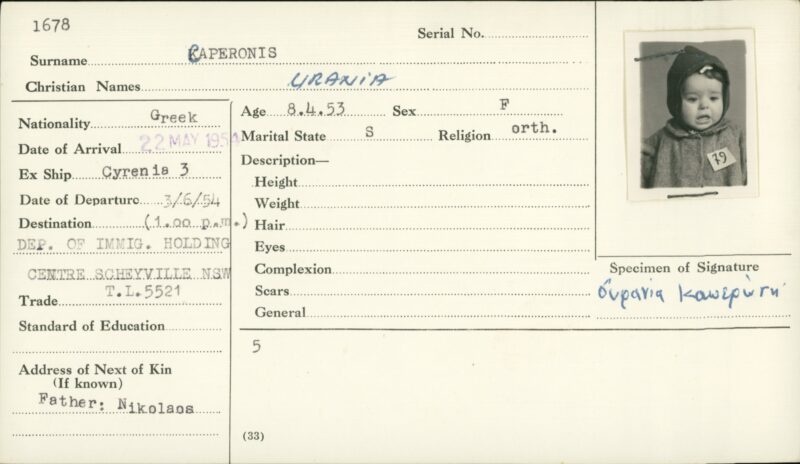 1678
Serial No.
Surname CAPERONIS
Christian Names URANIA
Nationality Greek
Date of Arrival 22 MAY 1954
Ex Ship Cyrenia 3
Date of Departure 3/6/54
Destination (1.00 p.m.)
DEP. OF IMMIG. HOLDING
CENTRE SCHEYVILLE NSW
T.L.5521
Trade
Standard of Education
Address of Next of Kin
(If known)
Father: Nikolaos
Age 8.4.53 Sex F
Marital State S Religion orth.
Description—
Height
Weight
Hair
Eyes
Complexion
Scars
General
5
(33)
79
Specimen of Signature
Οὐρανία Καπερώνη